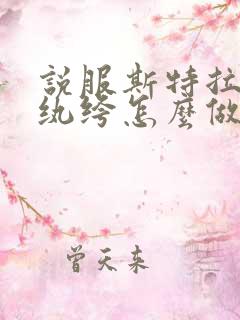 説服斯特拉
纨绔怎麼做
曾天来